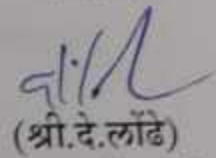 (श्री.दे.लोंढे)